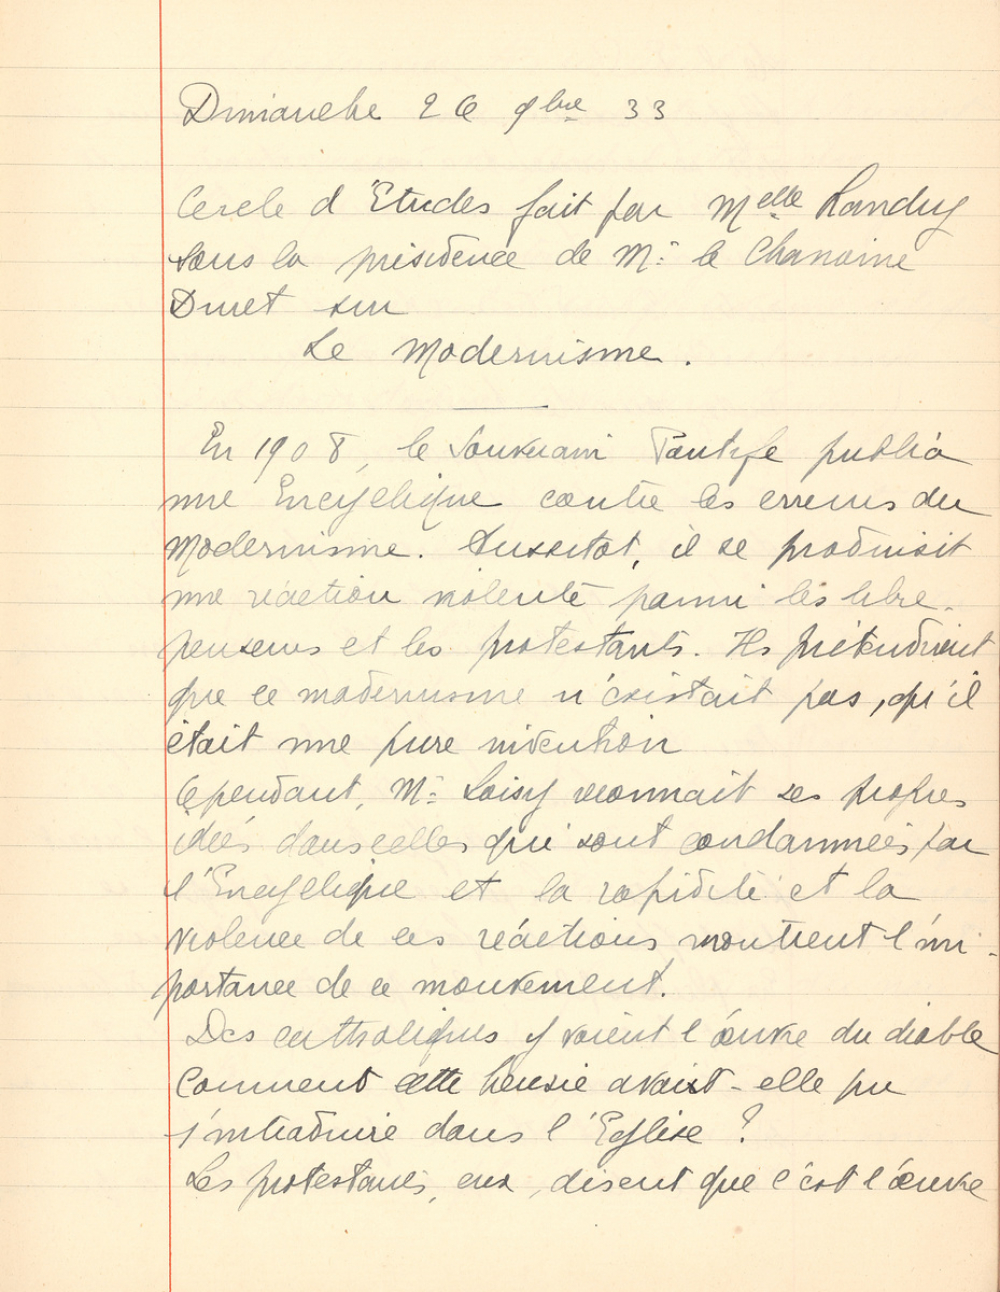 Dimanche 26 9bre 33
Cercle d'Etudes fait par Melle Landry
sous la présidence de Mr le Chanoine
Duret sur
Le Modernisme.
En 1908, le Souverain Pontife publia
une Encyclique contre les erreurs du
Modernisme. Aussitôt, il se produisit
une réaction violente parmi les libre-
penseurs et les protestants. Ils prétendirent
que ce modernisme n'existait pas, qu'il
était une pure invention
Cependant, Mr Loisy reconnait ses propres
idées dans celles qui sont condamnées par
l'Encyclique et la rapidité et la
violence de ces réactions montrent l'im-
portance de ce mouvement.
Des catholiques y voient l'œuvre du diable
Comment cette hérésie avait-elle pu
s'introduire dans l'Eglise ?
Les protestants, eux, disent que c'est l'œuvre